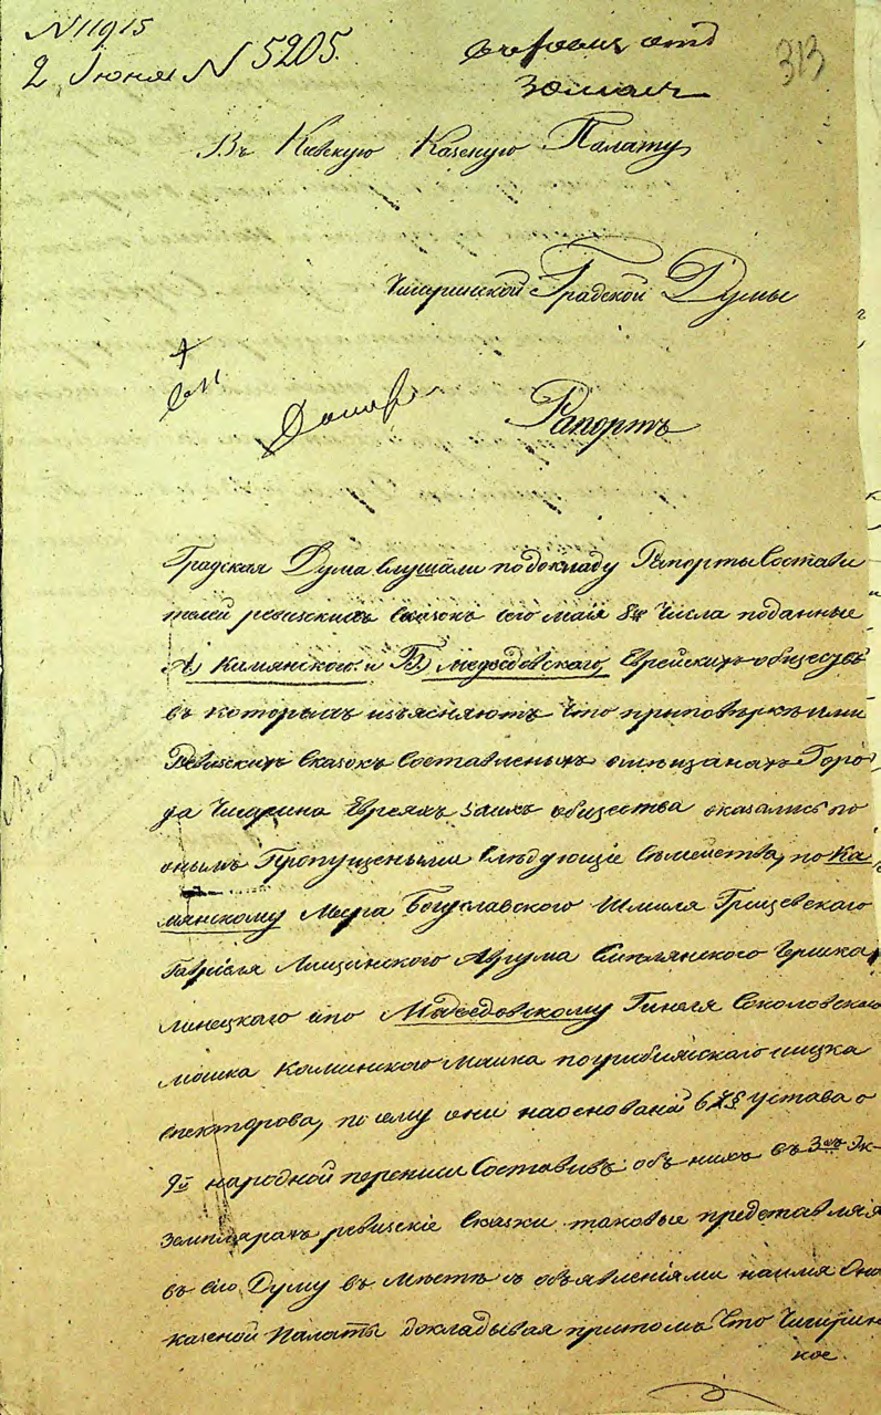 N 11915
2 Июня N 5205.
313
Въ Киевскую Казеную Палату
Чигиринской Градской Думы
Рапортъ
Градская Дума слушали по докладу Рапорты Состави
телей ревизскихъ сказокъ сего маія 8го числа поданные
А) Камянского и Б) Медведевскаго, Еврейскихъ обществъ
въ которыхъ изъясняютъ что приповѣркѣ ими
Ревизскихъ сказокъ Составленыхъ омѣщанахъ Горо
да Чигирина Евреяхъ ихъ общества оказались по
онымъ Пропущеными слѣдующіе Семейства, по Ка
мянскому Меера Богуславского Шмиля Грищевскаго
Гавріеля Лищинского Аврума Смелянского Гершка
линецкаго ипо Медведовскому Гинегя Соколовскаго
мошка Каминского Мошка погребисскаго ицка
спекторова, по сему они наоснованіи § устава о
9й народной переписи Составивъ объ нихъ въ 3хъ Эк-
земплярахъ ревизскіе Сказки таковые представляя
въ сію Думу въ мѣстѣ съ объявленіями наимя оно
казеной Палаты докладывая притомъ Что Чигирин
кое.